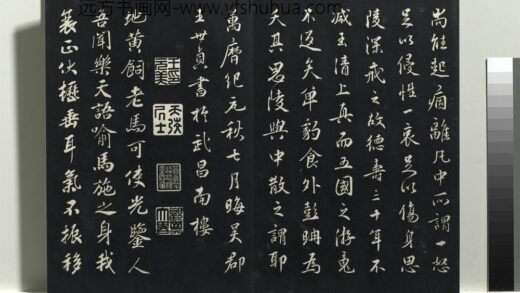 远方书画网- www.yfshuhua.com
尚能起痼離凡中所謂一怒
足以侵性一哀足以傷身思
陵深戒之故德壽三十年不
減玉清上真而五國之游竟
不返矣單豹食外彭聃為
夭其思陵與中散之謂耶
萬曆紀元秋七月晦吳郡
王世貞書於武昌南樓
天弢居士
地黃飼老馬可使光鑒人
吾聞樂天語喻馬施之身我
衰正伏櫪垂耳氣不振移